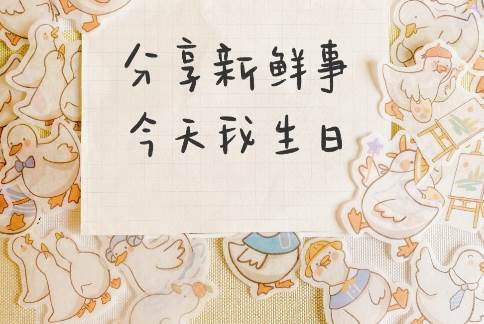 分享新鲜事
今天我生日